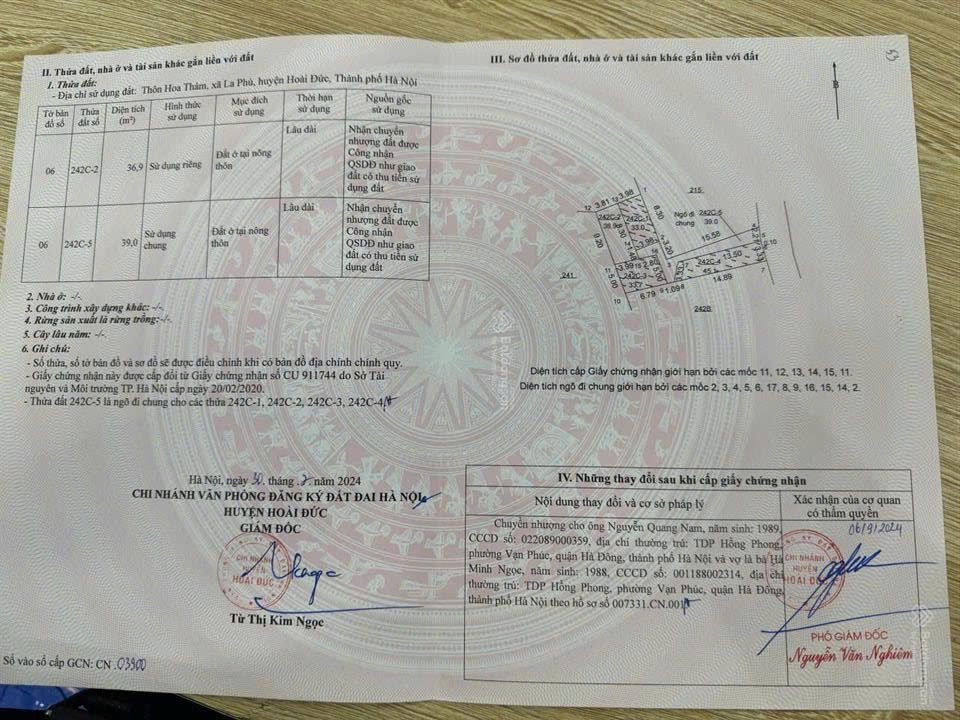 II. Thửa đất, nhà ở và tài sản khác gắn liền với đất
1. Thửa đất:
- Địa chỉ sử dụng đất: Thôn Hoa Thám, xã La Phù, huyện Hoài Đức, Thành phố Hà Nội
Tờ bản đồ số | Thửa đất số | Diện tích (m²) | Hình thức sử dụng | Mục đích sử dụng | Thời hạn sử dụng | Nguồn gốc sử dụng
06 | 242C-2 | 36,9 | Sử dụng riêng | Đất ở tại nông thôn | Lâu dài | Nhận chuyển nhượng đất được Công nhận QSDĐ như giao đất có thu tiền sử dụng đất
06 | 242C-5 | 39,0 | Sử dụng chung | Đất ở tại nông thôn | Lâu dài | Nhận chuyển nhượng đất được Công nhận QSDĐ như giao đất có thu tiền sử dụng đất
2. Nhà ở: -/-.
3. Công trình xây dựng khác: -/-.
4. Rừng sản xuất là rừng trồng: -/-.
5. Cây lâu năm: -/-.
6. Ghi chú:
- Số thửa, số tờ bản đồ và sơ đồ sẽ được điều chỉnh khi có bản đồ địa chính chính quy.
- Giấy chứng nhận này được cấp đổi từ Giấy chứng nhận số CU 911744 do Sở Tài
nguyên và Môi trường TP. Hà Nội cấp ngày 20/02/2020.
- Thửa đất 242C-5 là ngõ đi chung cho các thửa 242C-1, 242C-2, 242C-3, 242C-4
Hà Nội, ngày 30 tháng 7 năm 2024
CHI NHÁNH VĂN PHÒNG ĐĂNG KÝ ĐẤT ĐAI HÀ NỘI
HUYỆN HOÀI ĐỨC
GIÁM ĐỐC
CHI NHÁNH
HUYỆN
HOÀI ĐỨC
Từ Thị Kim Ngọc
Số vào sổ cấp GCN: CN 03900
III. Sơ đồ thửa đất, nhà ở và tài sản khác gắn liền với đất
B
215
12 3.81 13 3.98 1
242C-2
36.9
242C-1
33.0
8.30
Ngõ đi chung
242C-5
39.0
15.58
9.20
3.98
3.20
13.50
242C-4
14.89
241
3.99
242C-3
5.00
5.00
6.79
1.09
10
242B
Diện tích cấp Giấy chứng nhận giới hạn bởi các mốc 11, 12, 13, 14, 15, 11.
Diện tích ngõ đi chung giới hạn bởi các mốc 2, 3, 4, 5, 6, 17, 8, 9, 16, 15, 14, 2.
IV. Những thay đổi sau khi cấp giấy chứng nhận
Nội dung thay đổi và cơ sở pháp lý
Xác nhận của cơ quan
có thẩm quyền
Chuyển nhượng cho ông Nguyễn Quang Nam, năm sinh: 1989,
CCCD số: 022089000359, địa chỉ thường trú: TDP Hồng Phong,
phường Vạn Phúc, quận Hà Đông, thành phố Hà Nội và vợ là bà Hà
Minh Ngọc, năm sinh: 1988, CCCD số: 001188002314, địa chỉ
thường trú: TDP Hồng Phong, phường Vạn Phúc, quận Hà Đông,
thành phố Hà Nội theo hồ sơ số 007331.CN.001
06/9/2024
CHI NHÁNH
HUYỆN
HOÀI ĐỨC
PHÓ GIÁM ĐỐC
Nguyễn Văn Nghiêm
Batdongsan.com.vn